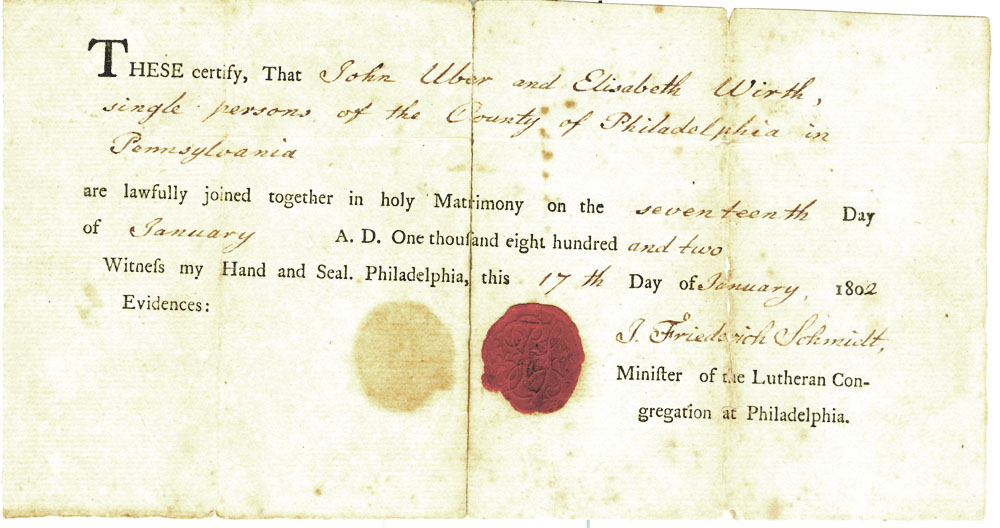 THESE certify, That John Uber and Elisabeth Wirth,
single persons of the County of Philadelphia in
Pennsylvania
are lawfully joined together in holy Matrimony on the seventeenth Day
of January A. D. One thouſand eight hundred and two
Witneſs my Hand and Seal. Philadelphia, this 17th Day of January, 1802
Evidences:
J. Friederich Schmidt,
Miniſter of the Lutheran Con-
gregation at Philadelphia.